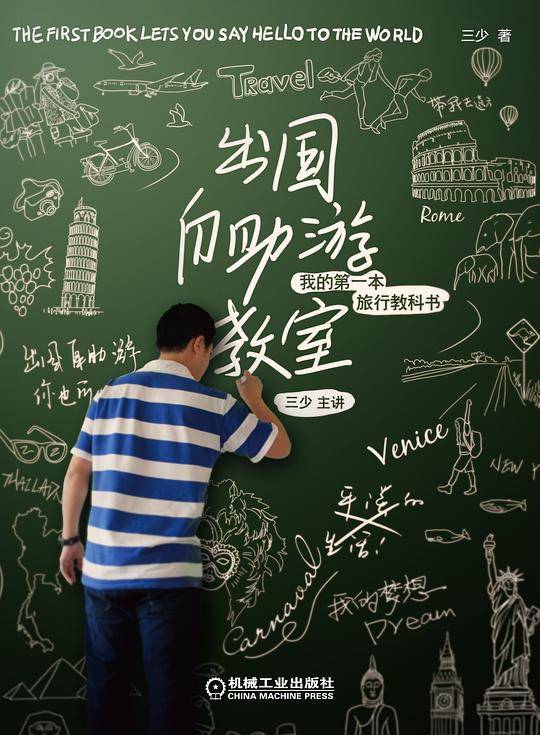 THE FIRST BOOK LETS YOU SAY HELLO TO THE WORLD
三少 著
Travel
带我去远方
出国
自助游
教室
Rome
我的第一本
旅行教科书
出国自助游
你也可
三少 主讲
Venice
THAILAND
NEW Y
平淡的
生活!
Carnaval
我的梦想
Dream
机械工业出版社
CHINA MACHINE PRESS